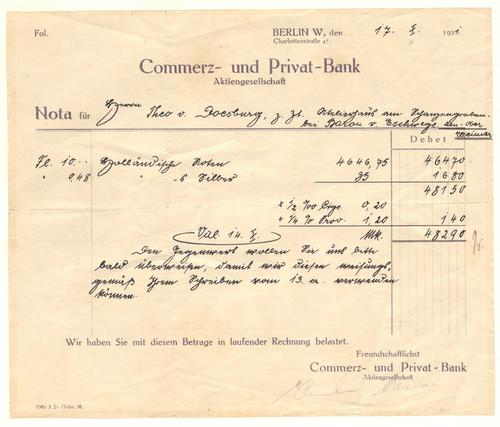 Fol.
BERLIN W, den 17. X. 1921.
Charlottenstraße 47.
Commerz- und Privat-Bank
Aktiengesellschaft
Nota für Herrn Theo v. Doesburg, z. Zt. Atelierhaus am Schanzengraben
bei Baron v. Eschwege
Debet
Fl. 10.-- Holländische Noten 4646,75 46470
" 0,48 " Silber 35 1680
48150
+ ½ ‰ Ctge. 0,20
+ ¼ % Prov. 1,20 140
Val. 14. X. Mk. 48290
Den Gegenwert wollen Sie uns bitte
bald überweisen, damit wir diesen weisungs-
gemäß Ihrem Schreiben vom 13. cr. verwenden
können.
Wir haben Sie mit diesem Betrage in laufender Rechnung belastet.
Freundschaftlichst
Commerz- und Privat-Bank
Aktiengesellschaft